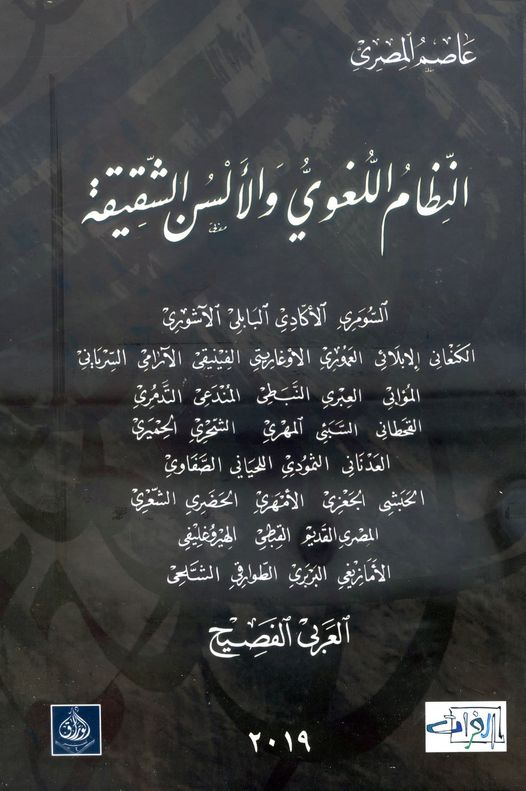 عَاصِمُ المِصرِي
النِّظَامُ اللُّغَوِيُّ وَالأَلْسُن الشَّقِيقَة
السُّومَري الأكَّادي البَابلي الآشوري
الكَنعَاني الإبلائي العَموري الأوغاريتي الفِينيقي الآرَامي السِّريَاني
المؤابي العِبري النَّبَطي المندَعي التَّدمُري
القَحطَاني السَّبَئي المَهري الشَّحْري الحِميَري
العَدنَاني الثمُودي اللحيَاني الصَّفَاوي
الحَبَشي الجَعزي الأمْهَري الحَضَري الشَّعري
المصري القَديم القِبطي الهيرُوغليفي
الأمَازيغي البَربَري الطوارقي الشَّلحي
العَرَبي الفَصِيح
الفرات
أوراق
٢٠١٩